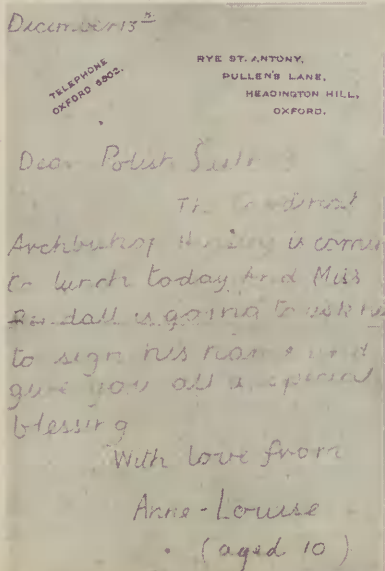 December 13th
TELEPHONE
OXFORD
RYE ST. ANTONY,
PULLEN'S LANE,
HEADINGTON HILL,
OXFORD.
Dear Polish
The Cardinal
Archbishop is comin
to lunch today and Miss
Rendall is going to ask hi
to sign his name and
give you all a special
blessing
With love from
Anne-Louise
(aged 10)